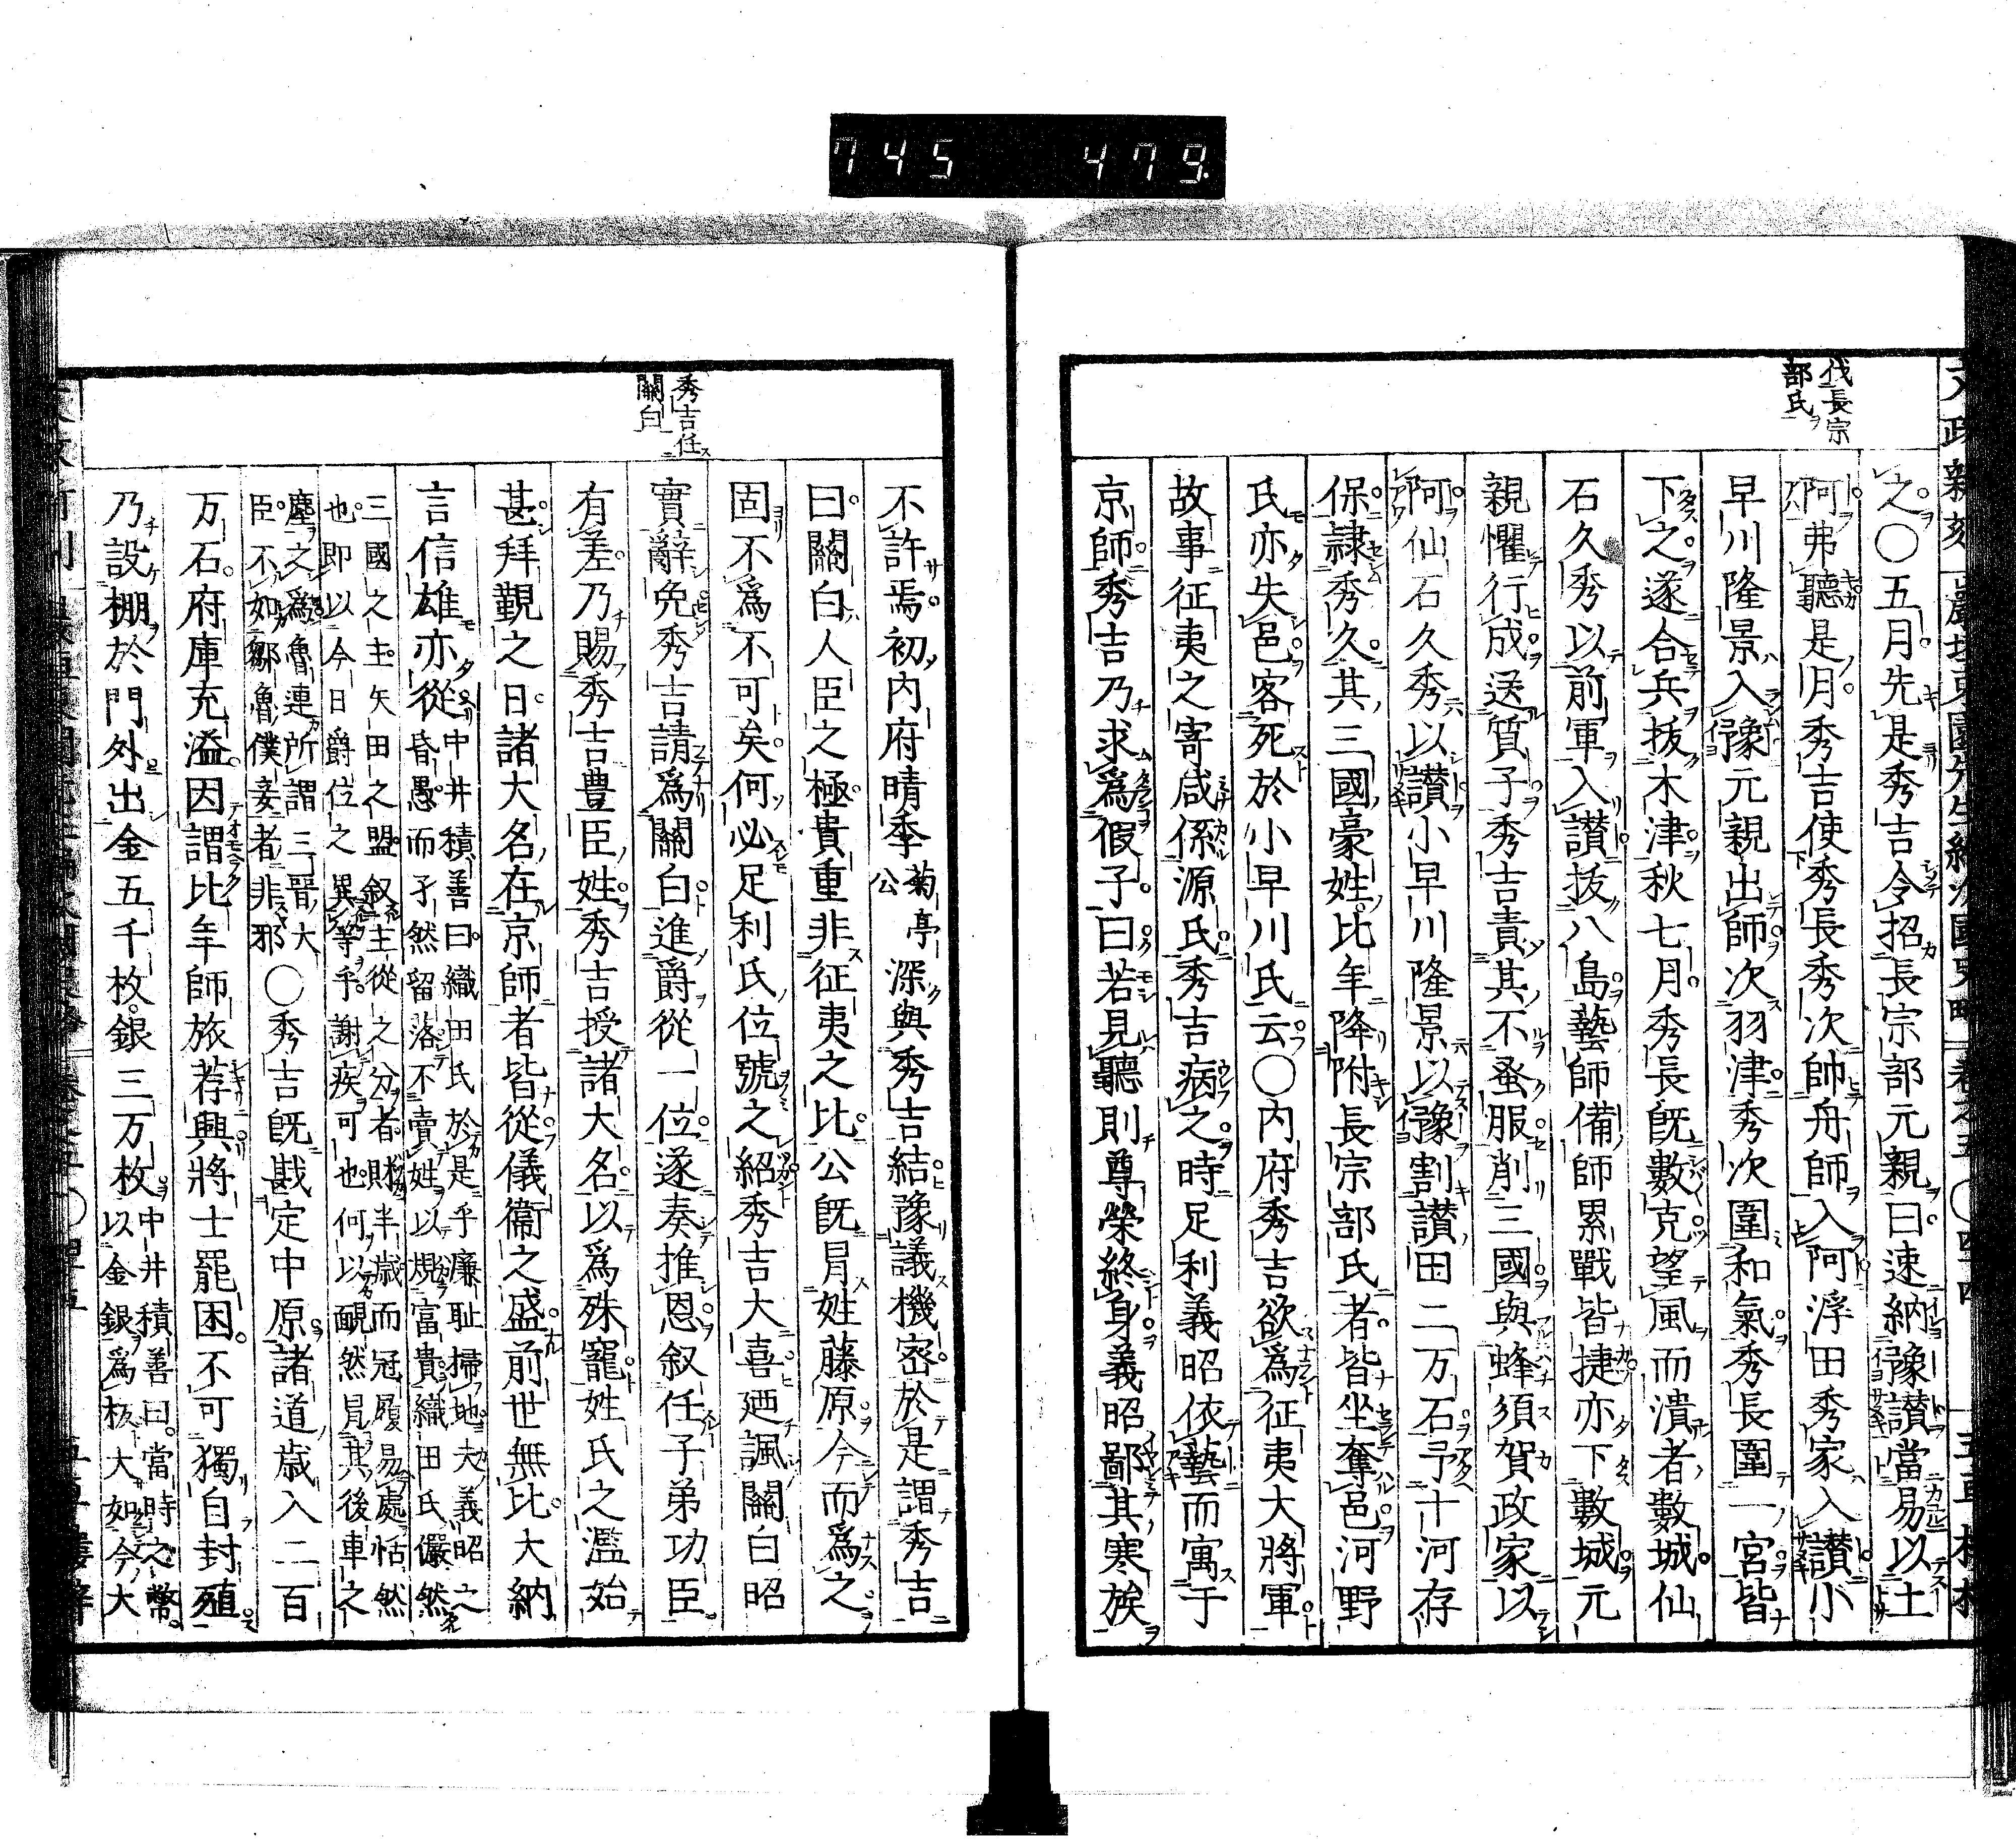 745 479
伐長宗
部氏
之〇五月先是秀吉令招長宗部元親曰速納豫讃當易以土
阿弗聽是月秀吉使秀長秀次帥舟師入阿浮田秀家入讃小
早川隆景入豫元親出師次羽津秀次圍和氣秀長圍一宮皆
下之遂合兵拔木津秋七月秀長既數克望風而潰者數城仙
石久秀以前軍入讃拔八島藝師備師累戰皆捷亦下數城元
親懼行成送質子秀吉責其不蚤服削三國與蜂須賀政家以
阿仙石久秀以讃小早川隆景以豫割讃田二万石予十河存
保隷秀久其三國豪姓比年降附長宗部氏者皆坐奪邑河野
氏亦失邑客死於小早川氏云〇內府秀吉欲爲征夷大將軍
故事征夷之寄咸係源氏秀吉病之時足利義昭依藝而寓于
京師秀吉乃求爲假子曰若見聽則尊榮終身義昭鄙其寒族
秀吉任
關白
不許焉初內府晴季菊亭公深與秀吉結豫議機密於是謂秀吉
曰關白人臣之極貴重非征夷之比公既冐姓藤原今而爲之
固不爲不可矣何必足利氏位號之紹秀吉大喜廼諷關白昭
實辭免秀吉請爲關白進爵從一位遂奏推恩叙任子弟功臣
有差乃賜秀吉豊臣姓秀吉授諸大名以爲殊寵姓氏之濫始
甚拜覲之日諸大名在京師者皆從儀衞之盛前世無比大納
言信雄亦從
中井積善曰織田氏於是乎廉耻掃地夫義昭之
昏愚而孑然留落不賣姓以規富貴織田氏儼然
三國之主矢田之盟叙主從之分者財半歳而冠履易處恬然
也即以今日爵位之異等乎謝疾可也何以靦然冐其後車之
塵之爲魯連所謂三晋大
臣不如鄒魯僕妾者非邪
〇秀吉既戡定中原諸道歳入二百
万石府庫充溢因謂比年師旅荐興將士罷困不可獨自封殖
乃設棚於門外出金五千枚銀三万枚
中井積善曰當時之幣
以金銀爲板大如今大